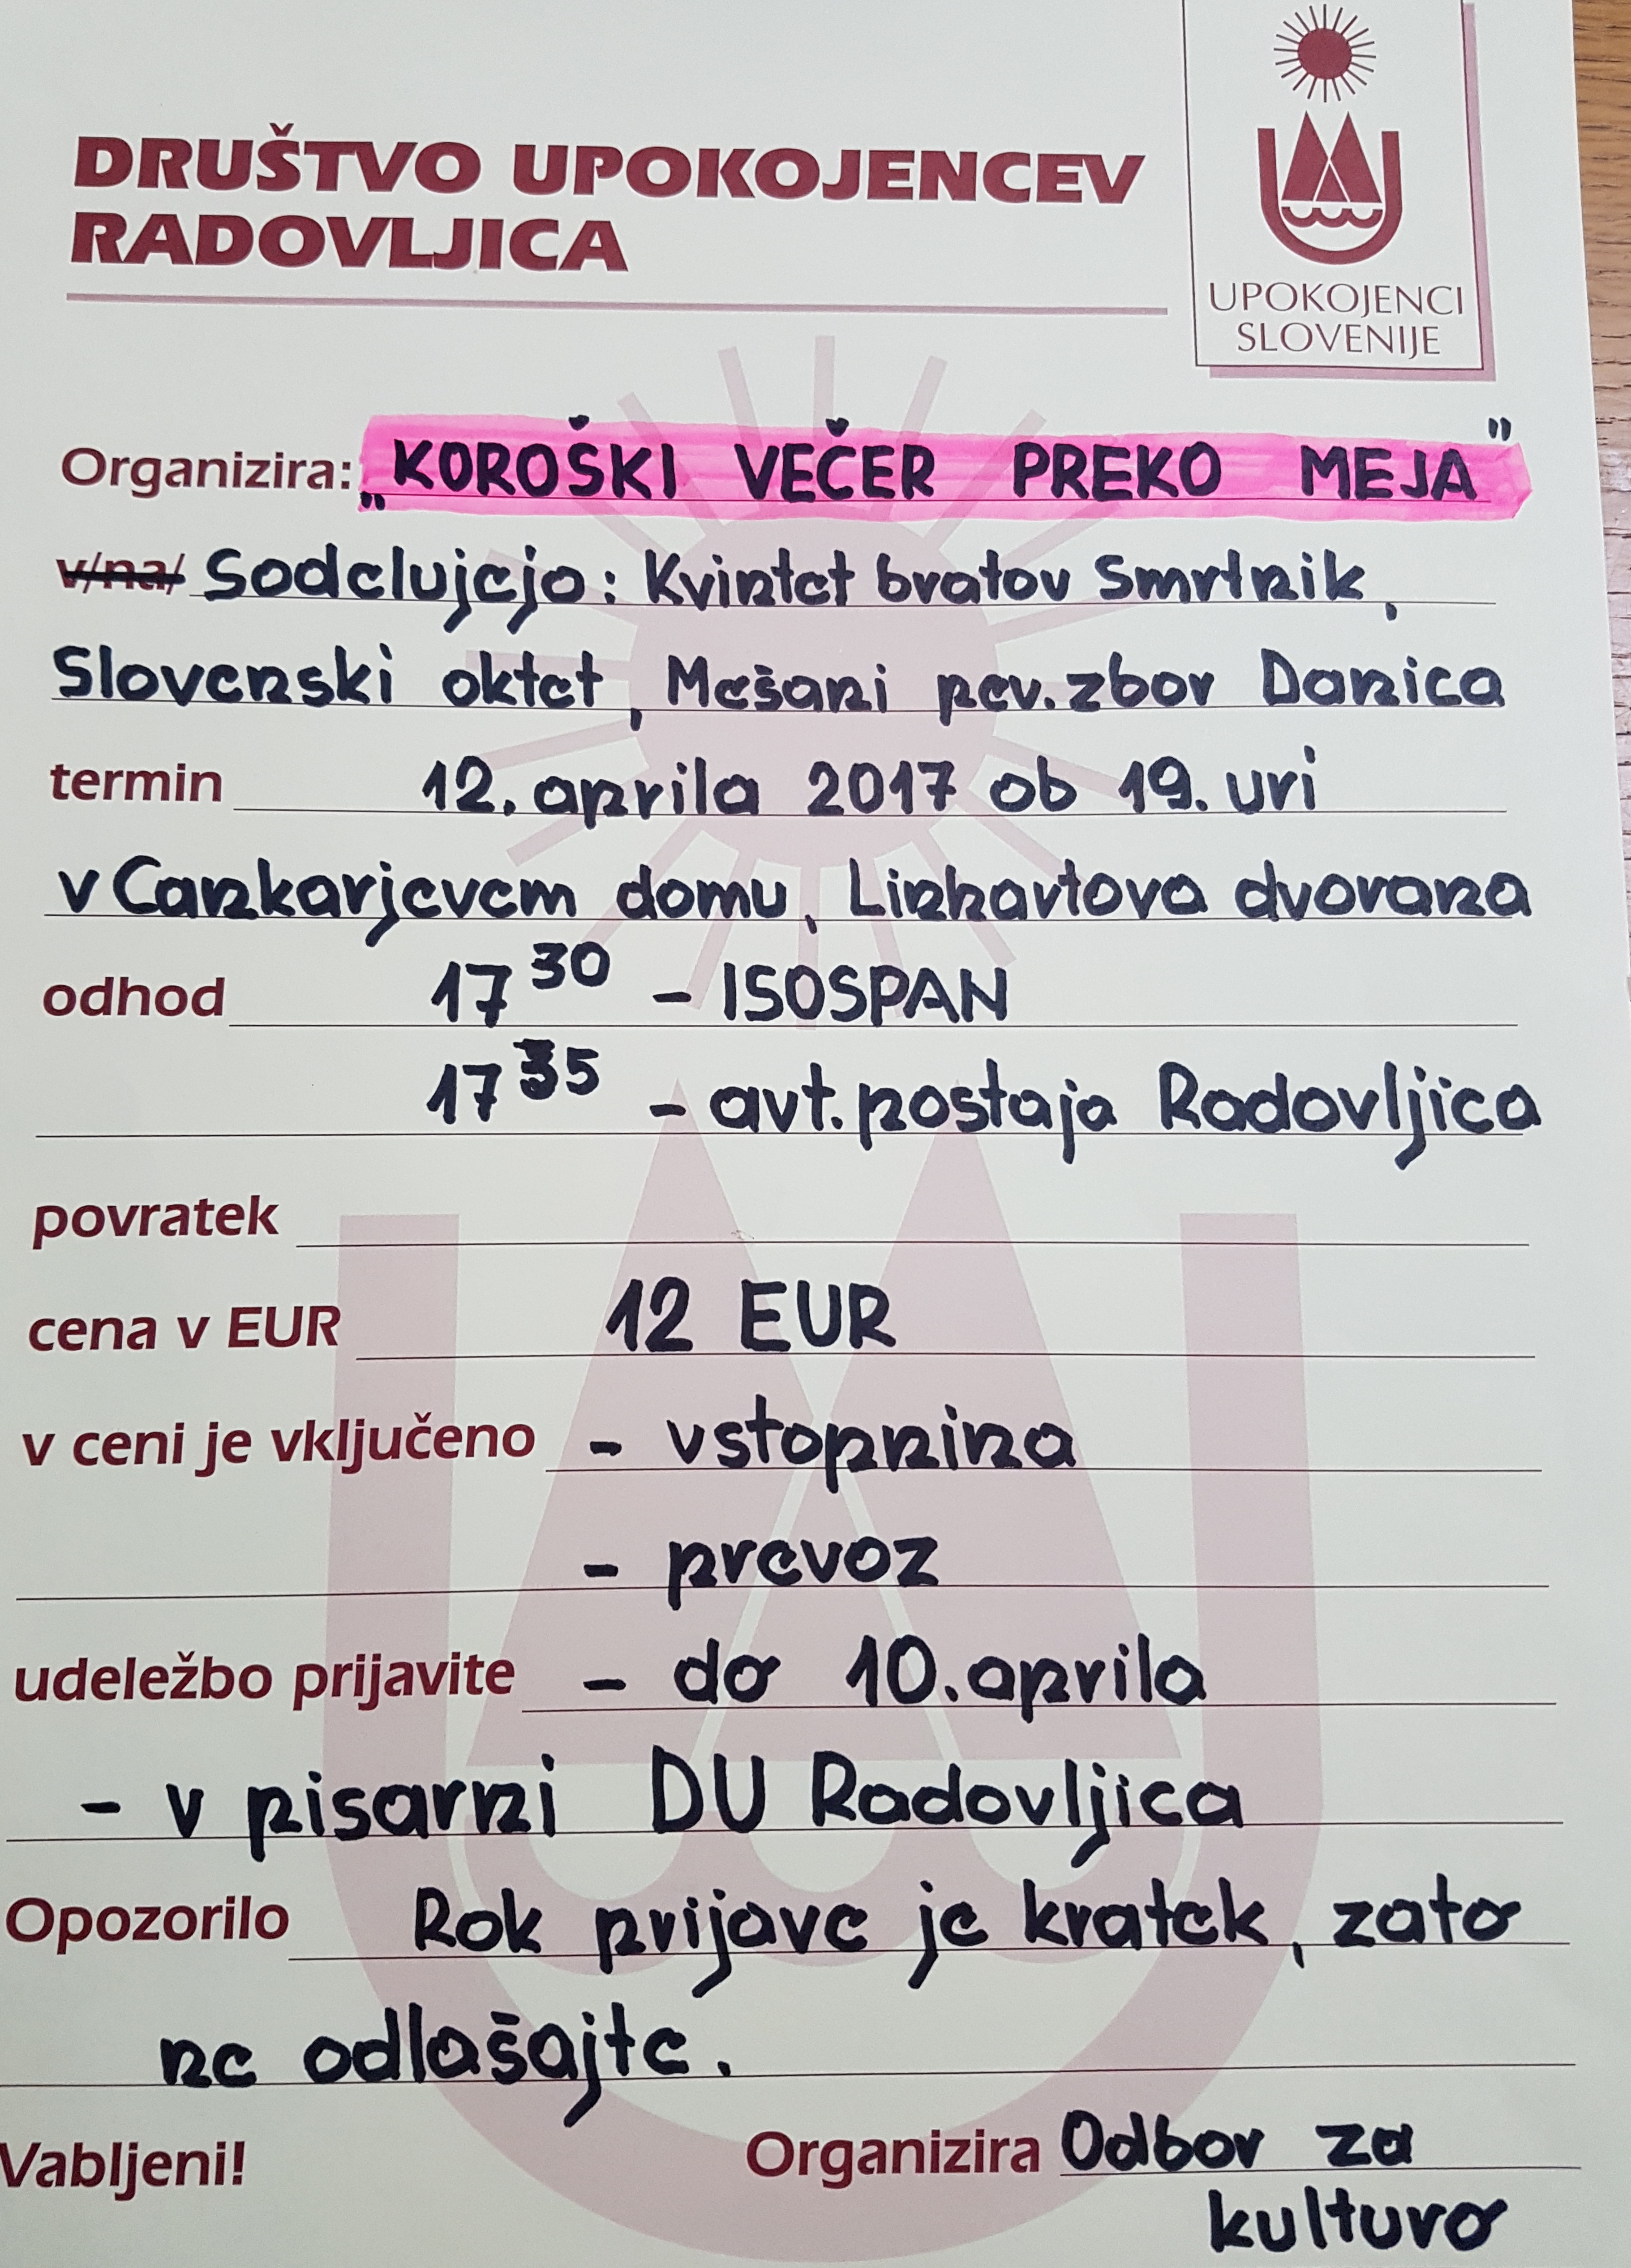 DRUŠTVO UPOKOJENCEV
RADOVLJICA
UPOKOJENCI
SLOVENIJE
Organizira: „KOROŠKI VEČER PREKO MEJA"
v/na/ Sodelujejo: Kvintet bratov Smrtnik,
Slovenski oktet, Mešani pev. zbor Danica
termin 12. aprila 2017 ob 19. uri
v Cankarjevem domu, Linhartova dvorana
odhod 17 30 - ISOSPAN
17 35 - avt. postaja Radovljica
povratek
cena v EUR 12 EUR
v ceni je vključeno - vstopnina
- prevoz
udeležbo prijavite - do 10. aprila
- v pisarni DU Radovljica
Opozorilo Rok prijave je kratek, zato
ne odlašajte.
Vabljeni! Organizira Odbor za
kulturo